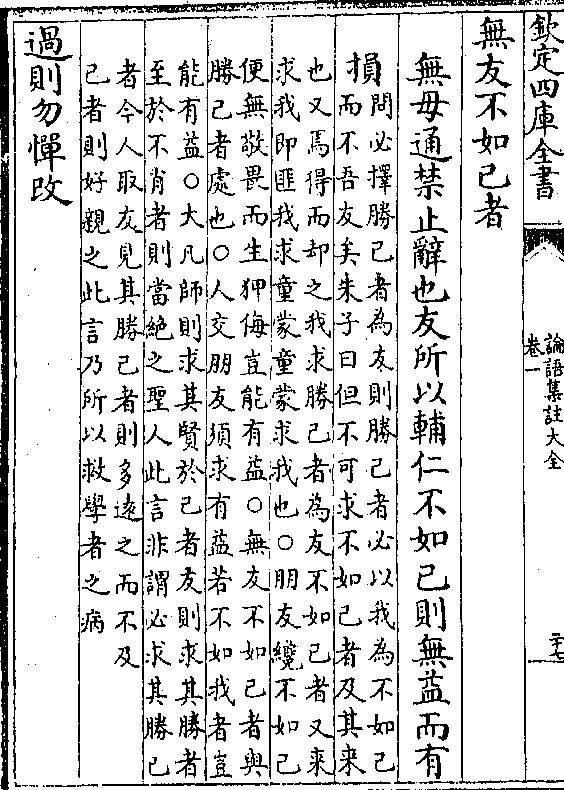 欽定四庫全書
論語集註大全
卷一
無友不如己者
無毋通禁止辭也友所以輔仁不如己則無益而有
損
問必擇勝己者為友則勝己者必以我為不如己
而不吾友矣朱子曰但不可求不如己者及其来
也又焉得而却之我求勝己者為友不如己者又来
求我即匪我求童蒙童蒙求我也○朋友纔不如己
便無敬畏而生狎侮豈能有益○無友不如己者與
勝己者處也○人交朋友須求有益若不如我者豈
能有益○大凡師則求其賢於己者友則求其勝者
至於不肖者則當絶之聖人此言非謂必求其勝己
者今人取友見其勝己者則多遠之而不及
己者則好親之此言乃所以救學者之病
過則勿憚改